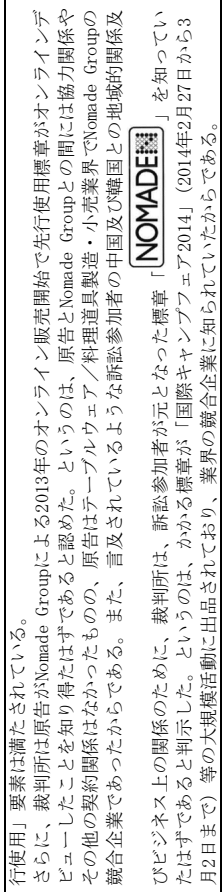 行使用」要素は満たされている。
さらに、裁判所は原告がNomade Groupによる2013年のオンライン販売開始で先行使用標章がオンラインデ
ビューしたことを知り得たはずであると認めた。というのは、原告とNomade Groupとの間には協力関係や
その他の契約関係はなかったものの、原告はテーブルウェア／料理道具製造・小売業界でNomade Groupの
競合企業であったからである。また、言及されているような訴訟参加者の中国及び韓国との地域的関係及
びビジネス上の関係のために、裁判所は、訴訟参加者が元となった標章「NOMADE」を知ってい
たはずであると判示した。というのは、かかる標章が「国際キャンプフェア2014」（2014年2月27日から3
月2日まで）等の大規模活動に出品されており、業界の競合企業に知られていたからである。